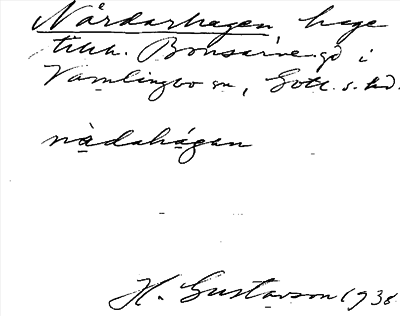 Nårdarhagen hage
tillh. Bonsarve gd i
Vamlingbo sn, Gotl. s. hd.
nàdahágan
H. Gustavson 1938